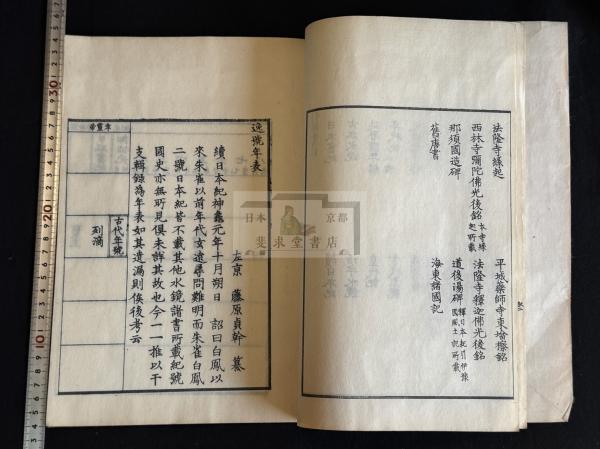 法隆寺縁起
平城藥師寺東塔檫銘
西林寺彌陀佛光後銘 本寺縁起所載
法隆寺釋迦佛光後銘
那須國造碑
道後湯碑 釋日本紀引伊豫國風土記所載
舊唐書
海東諸國記
逸號年表
左京 藤原貞幹 纂
續日本紀神龜元年十月朔日 詔曰白鳳以
來朱雀以前年代玄遠尋問難明而朱雀白鳳
二號日本紀皆不載其他水鏡諸書所載紀號
國史亦無所見俱未詳其故也今一一推以干
支輯録為年表如其遺漏則俟後考云
古代年號
列滴
孝靈帝
日本 京都
斐求堂書店